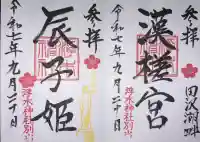 参拝
漢槎宮
令和七年九月二十日
浮木神社別当
田沢湖畔
参拝
辰子姫
令和七年九月二十日
浮木神社別当